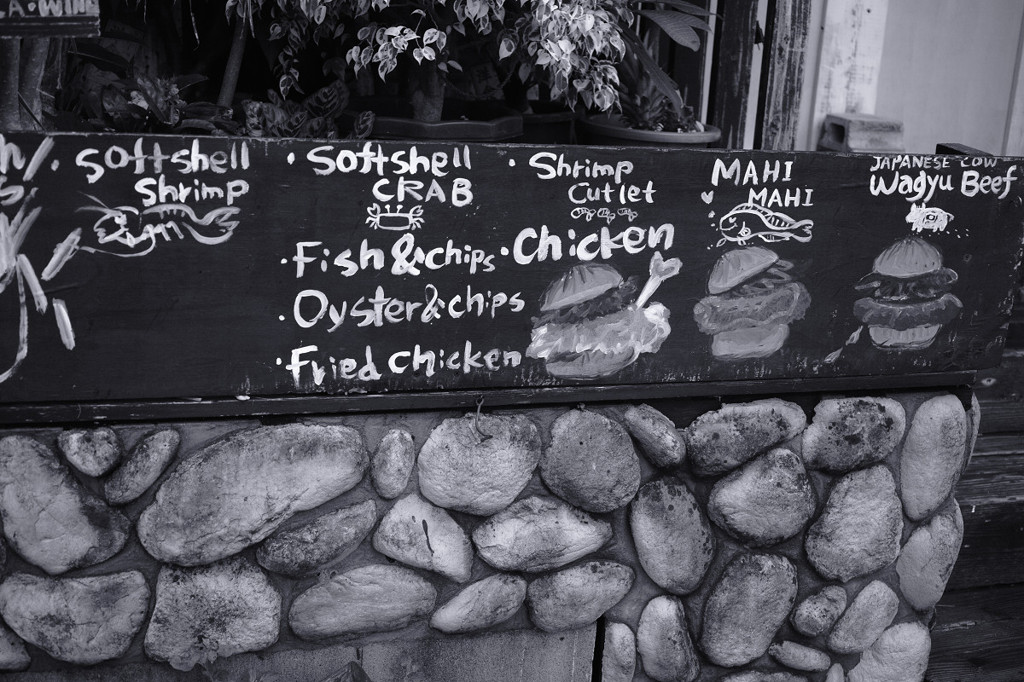 · Softshell
Shrimp
· Softshell
CRAB
· Shrimp
Cutlet
MAHI
MAHI
JAPANESE COW
Wagyu Beef
· Fish & chips
· Chicken
· Oyster & chips
· Fried chicken